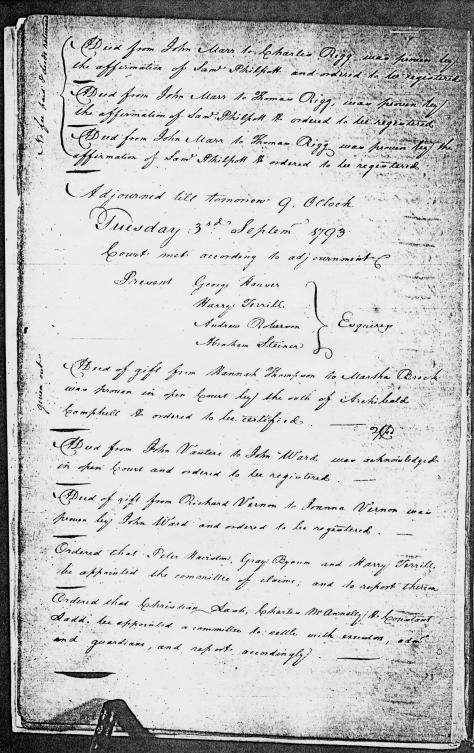 A Deed from John Marr to Charles Rigg was proven by
the affirmation of Saml Philpott and ordered to be registered
A Deed from John Marr to Thomas Rigg, was proven by
the affirmation of Saml Philpott & ordered to be registered
A Deed from John Marr to Thomas Rigg was proven by the
affirmation of Saml Philpott & ordered to be registered
Adjourned till tomorrow 9. OClock
Tuesday 3rd Septem 1793
Court met according to adjournment
Present George Hauser
Harry Terrill
Andrew Roberson
Abraham Steiner
Esquires
A Deed of gift from Hannah Thompson to Martha Brock
was proven in open Court by the oath of Archibald
Campbell & ordered to be certified.
A Deed from John Vauters to John Ward was acknowledged
in open Court and ordered to be registered.
A Deed of gift from Richard Vernon to Joanna Vernon was
proven by John Ward and ordered to be registered.
Ordered that Peter Hairston, Gray Bynum and Harry Terrill
be appointed the committee of claims, and to report therein
Ordered that Christian Lash, Charles McAnnelly & Constant
Ladd be appointed a committee to settle with executors, adms
and guardians, and report accordingly
given out